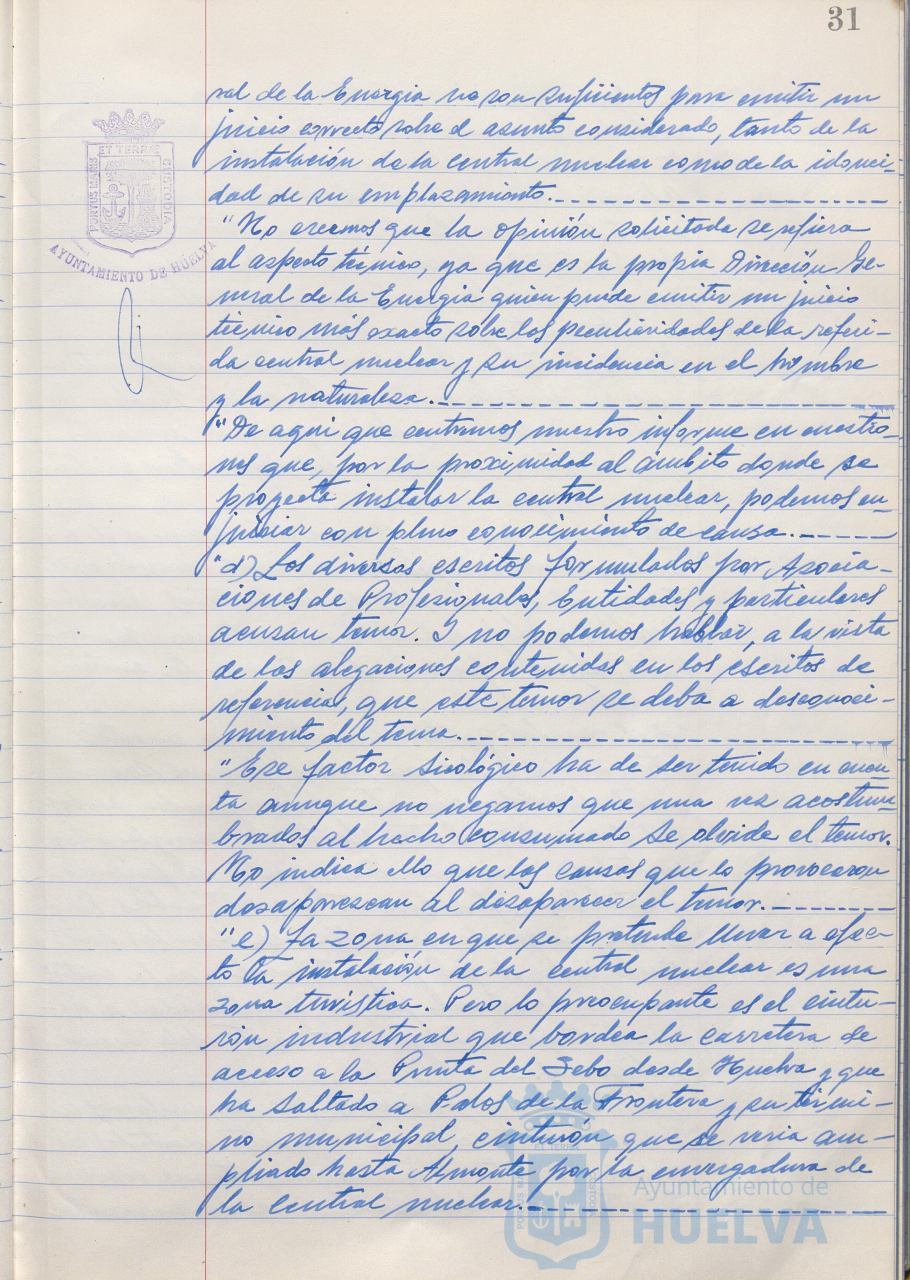 31
ral de la Energia no son suficientes para emitir un
juicio correcto sobre el asunto considerado, tanto de la
instalación de la central nuclear como de la idonei-
dad de su emplazamiento.
"No creemos que la opinión solicitada se refiera
al aspecto técnico, ya que es la propia Dirección Ge-
neral de la Energia quien puede emitir un juicio
técnico más exacto sobre las peculiaridades de la referi-
da central nuclear y su incidencia en el hombre
y la naturaleza.
"De aqui que centremos nuestro informe en cuestio-
nes que, por la proximidad al ámbito donde se
proyecta instalar la central nuclear, podemos en-
juiciar con pleno conocimiento de causa.
"d) Los diversos escritos formulados por Asocia-
ciones de Profesionales, Entidades y particulares
acusan temor. Y no podemos hablar, a la vista
de las alegaciones contenidas en los escritos de
referencia, que este temor se deba a desconoci-
miento del tema.
"Ese factor sicológico ha de ser tenido en cuen-
ta aunque no negamos que una vez acostum-
brados al hecho consumado se olvide el temor.
No indica ello que las causas que lo provocaron
desaparezcan al desaparecer el temor.
"e) La zona en que se pretende llevar a efec-
to la instalación de la central nuclear es una
zona turística. Pero lo preocupante es el cintu-
rón industrial que bordea la carretera de
acceso a la Punta del Sebo desde Huelva y que
ha saltado a Palos de la Frontera y su térmi-
no municipal, cinturón que se veria am-
pliado hasta Almonte por la envergadura de
la central nuclear.
PORTUS MARIS
ET TERRAE
CUSTODIA
AYUNTAMIENTO DE HUELVA
Ayuntamiento de
HUELVA